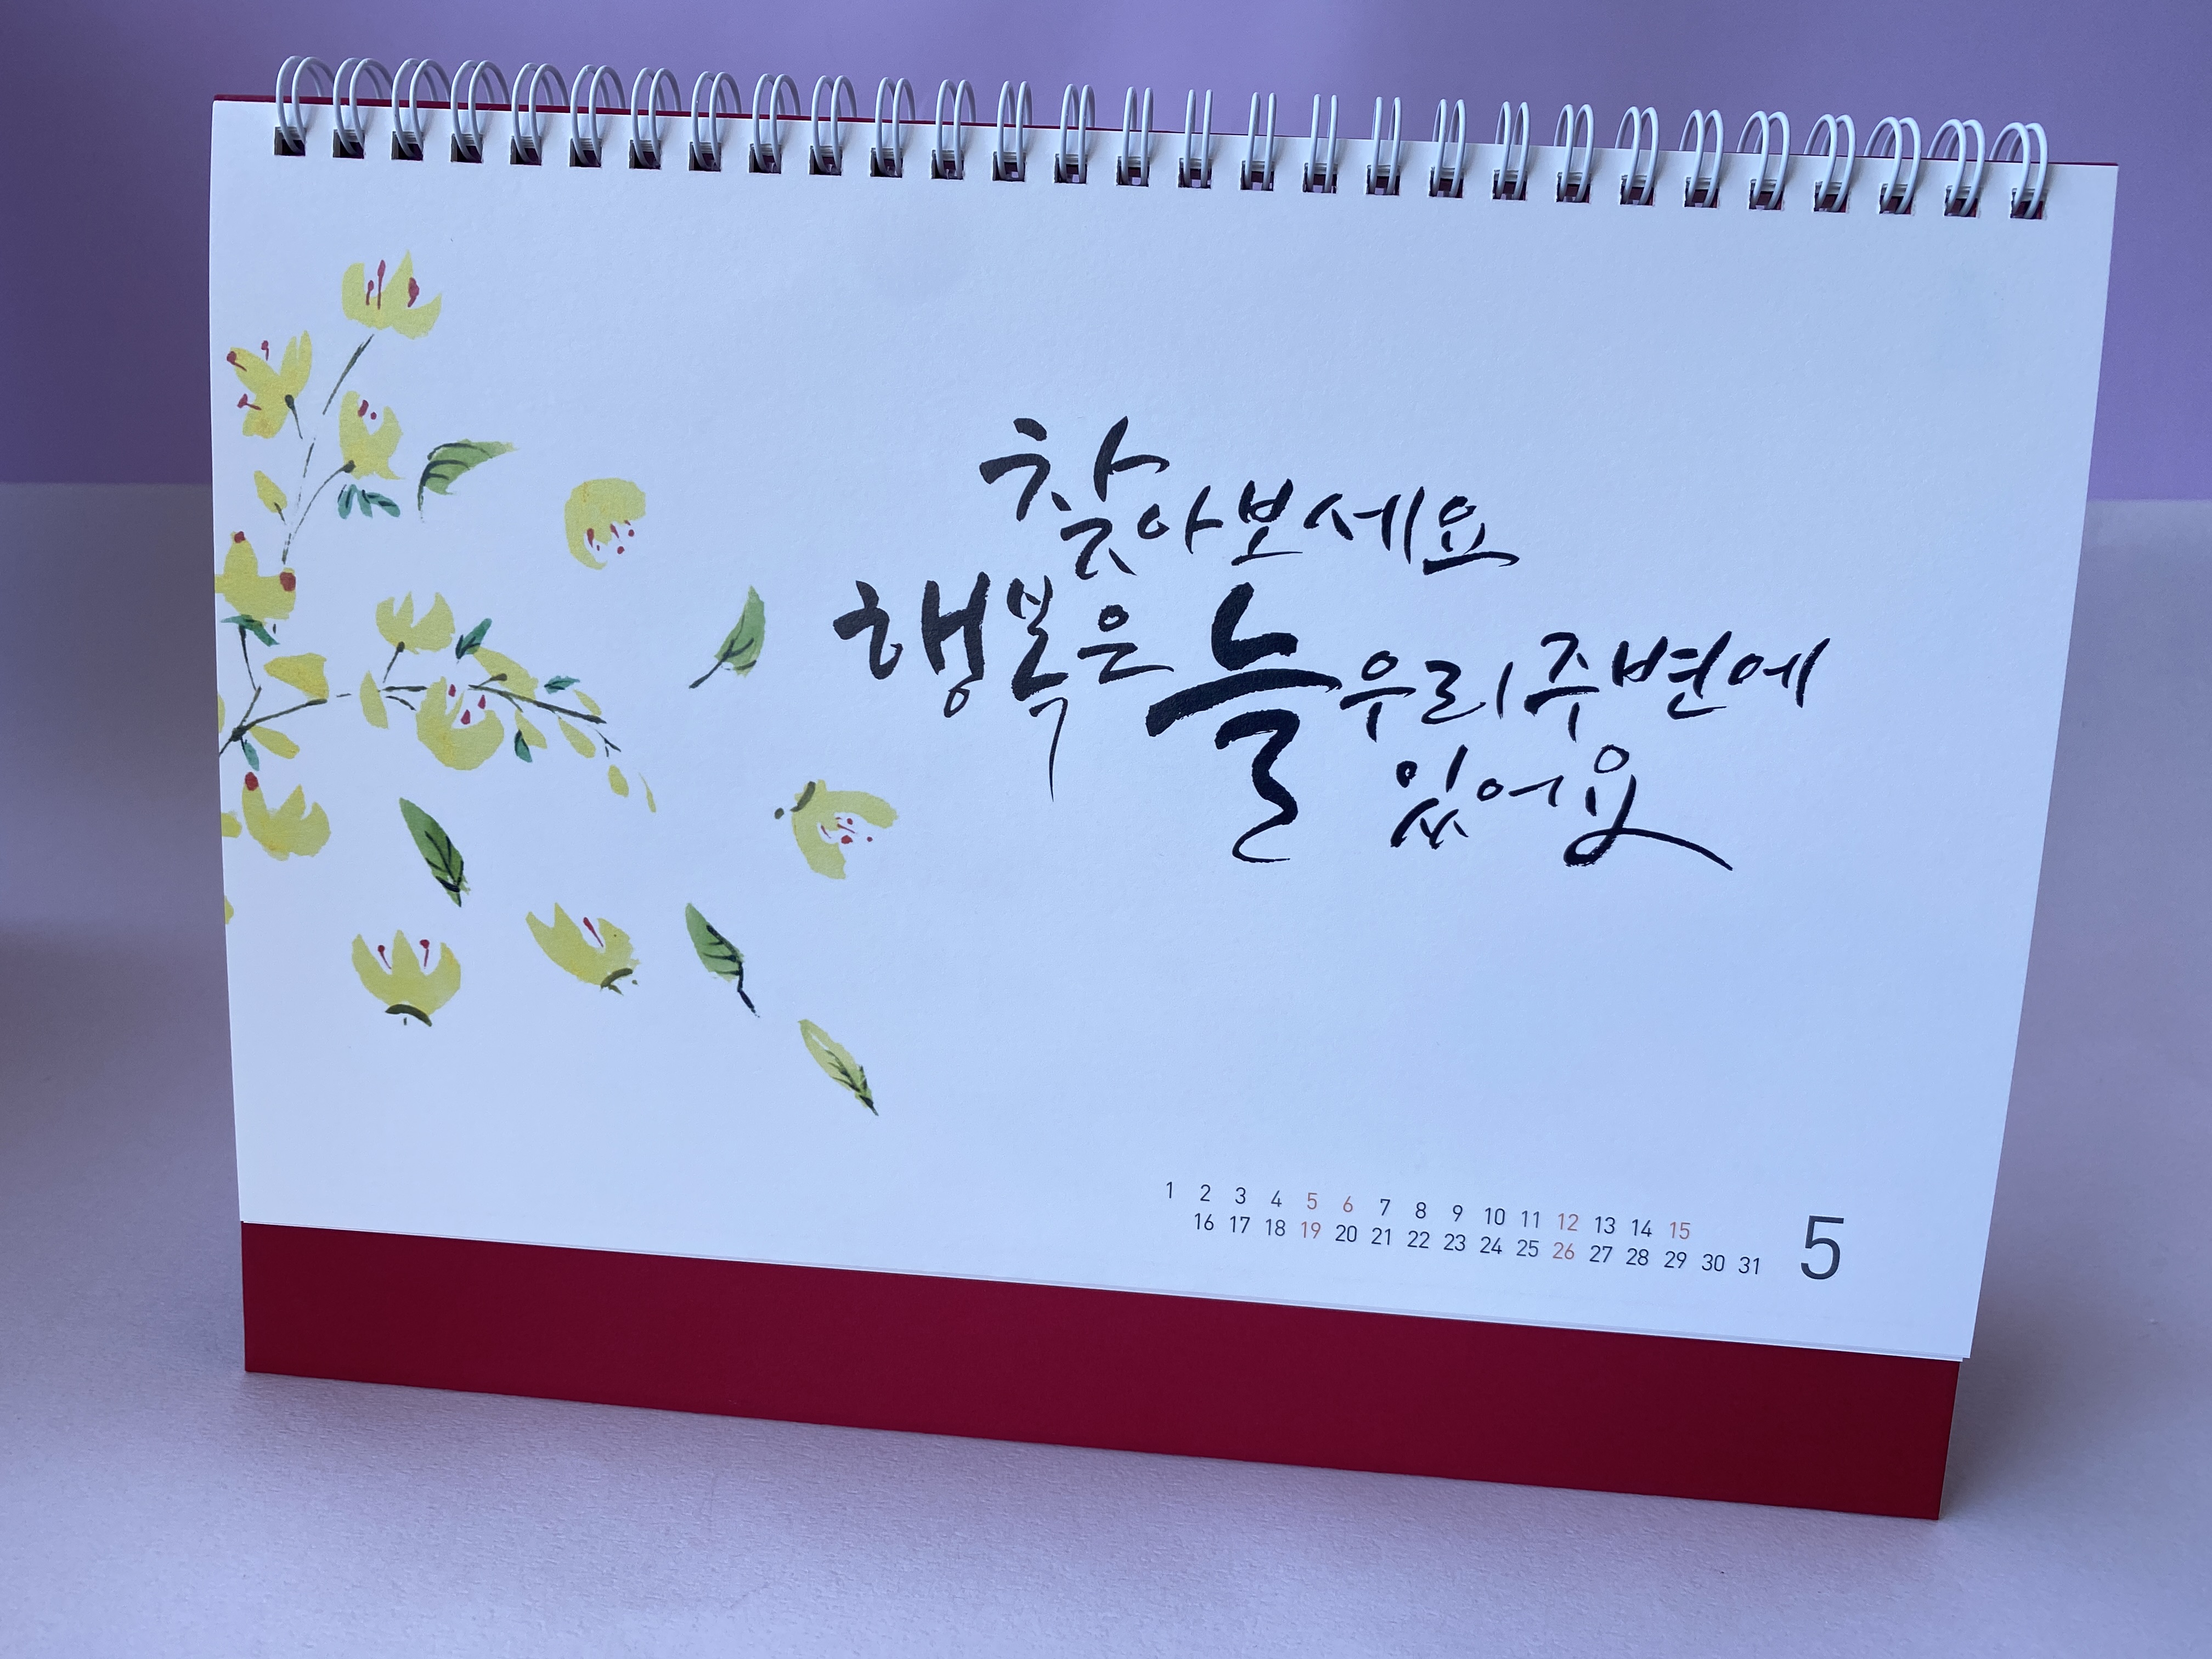 찾아보세요
행복은 늘 우리 주변에
있어요
1 2 3 4 5 6 7 8 9 10 11 12 13 14 15
16 17 18 19 20 21 22 23 24 25 26 27 28 29 30 31
5